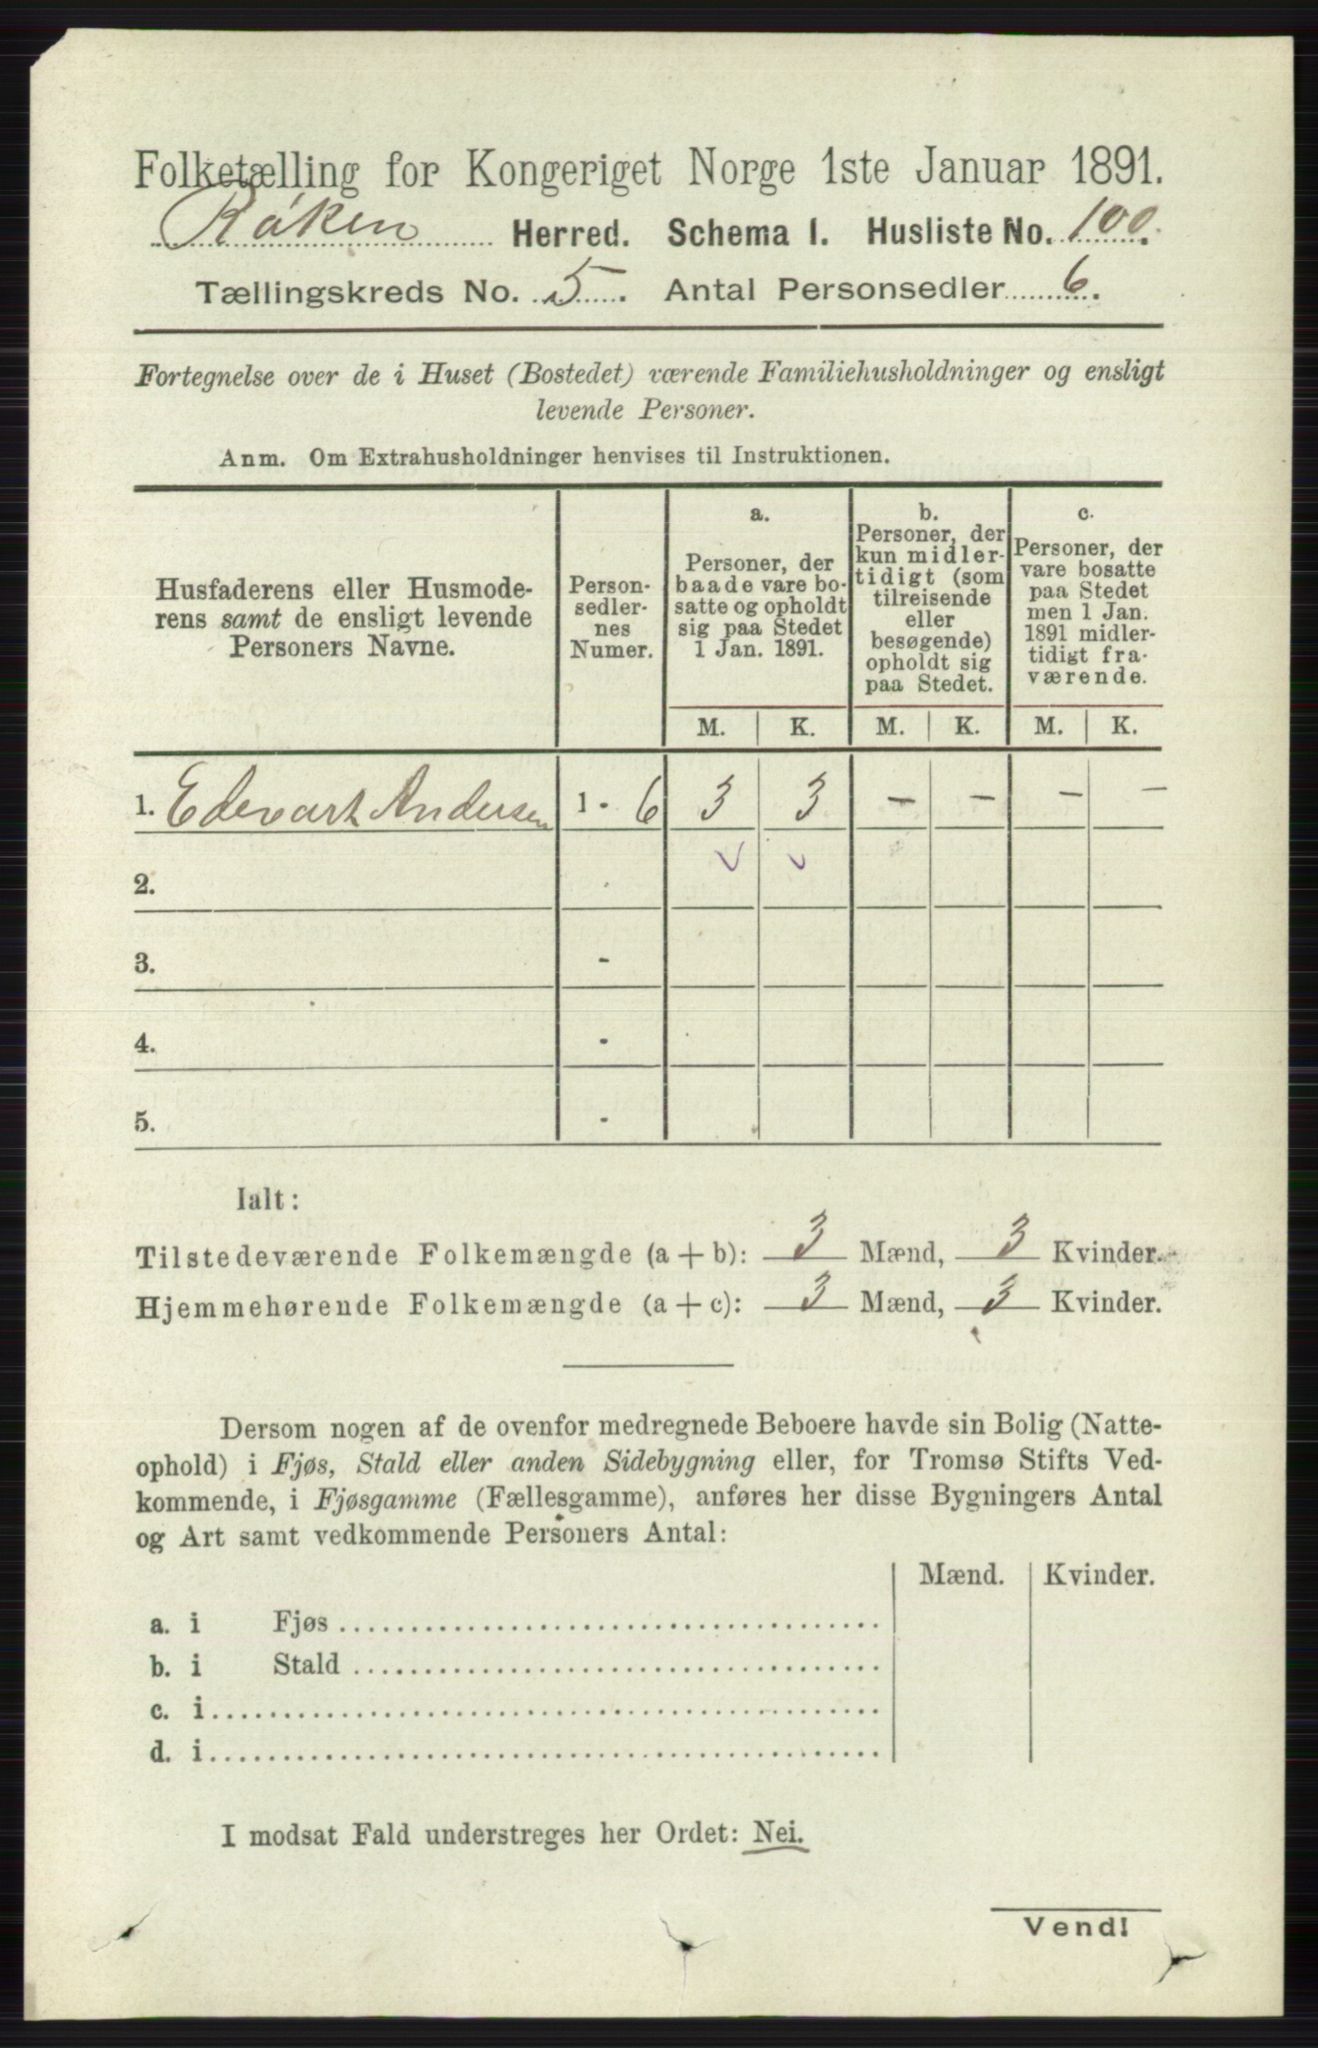 Folketælling for Kongeriget Norge 1ste Januar 1891.
Røken Herred. Schema I. Husliste No. 100.
Tællingskreds No. 5. Antal Personsedler 6.
Fortegnelse over de i Huset (Bostedet) værende Familiehusholdninger og ensligt
levende Personer.
Anm. Om Extrahusholdninger henvises til Instruktionen.
Husfaderens eller Husmode-
rens samt de ensligt levende
Personers Navne.
Person-
sedler-
nes
Numer.
a.
Personer, der
baade vare bo-
satte og opholdt
sig paa Stedet
1 Jan. 1891.
b.
Personer, der
kun midler-
tidigt (som
tilreisende
eller
besøgende)
opholdt sig
paa Stedet.
c.
Personer, der
vare bosatte
paa Stedet
men 1 Jan.
1891 midler-
tidigt fra-
værende.
M. K. M. K. M. K.
1. Edevart Andersen 1 - 6 3 3 - - - -
2. -
3. -
4. -
5. -
Ialt:
Tilstedeværende Folkemængde (a + b): 3 Mænd, 3 Kvinder.
Hjemmehørende Folkemængde (a + c): 3 Mænd, 3 Kvinder.
Dersom nogen af de ovenfor medregnede Beboere havde sin Bolig (Natte-
ophold) i Fjøs, Stald eller anden Sidebygning eller, for Tromsø Stifts Ved-
kommende, i Fjøsgamme (Fællesgamme), anføres her disse Bygningers Antal
og Art samt vedkommende Personers Antal:
Mænd. Kvinder.
a. i Fjøs
b. i Stald
c. i
d. i
I modsat Fald understreges her Ordet: Nei.
Vend!